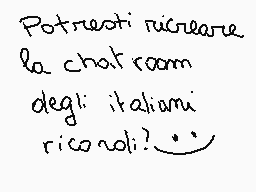 Potresti ricreare
la chat room
degli italiani
ricordi?